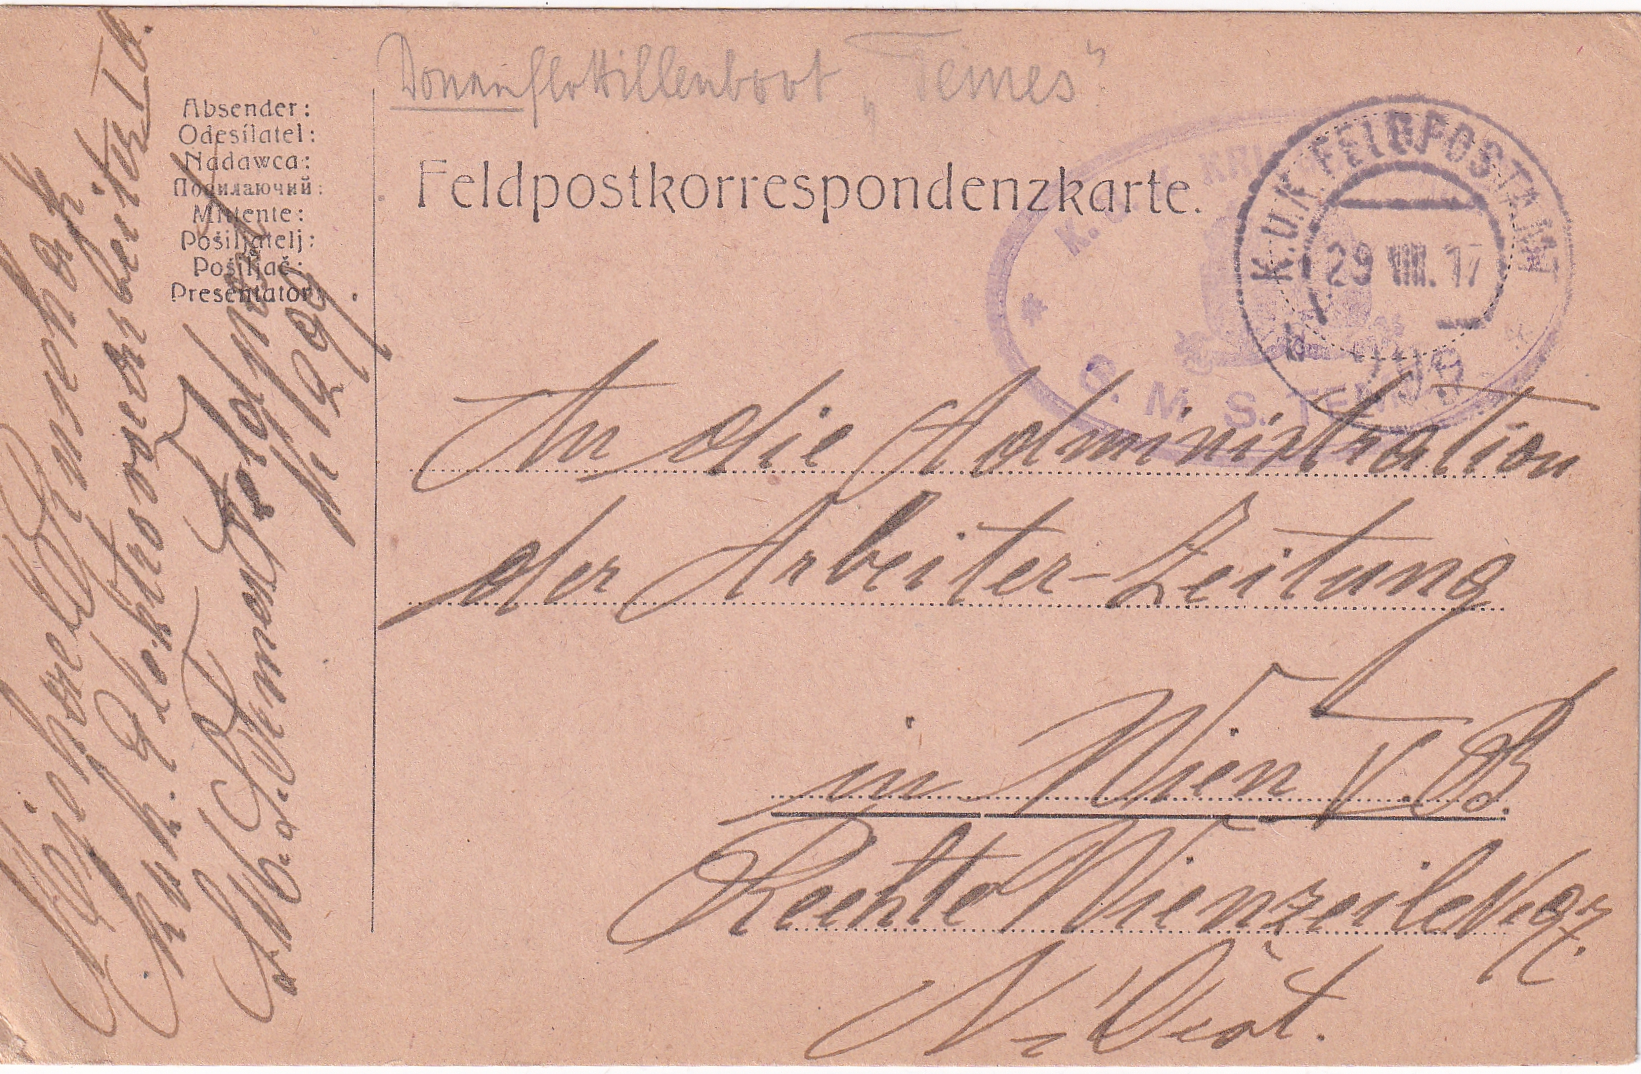 Donauflottillenboot „Temes"
Absender:
Odesílatel:
Nadawca:
Посилаючий:
Mittente:
Pošiljatelj:
Pošiljač:
Presentator:
Feldpostkorrespondenzkarte.
K. U. K. FELDPOSTAMT
29 VIII. 17
b
K. U. K. KRI
S. M. S. TEMES
An die Administration
der Arbeiter-Zeitung
in Wien V. B.
Rechte Wienzeile Nr. 97.
N. Öst.
k. u. k. Elektrovorarbeiter
S. M. S. Temes Feldpost
N. 299